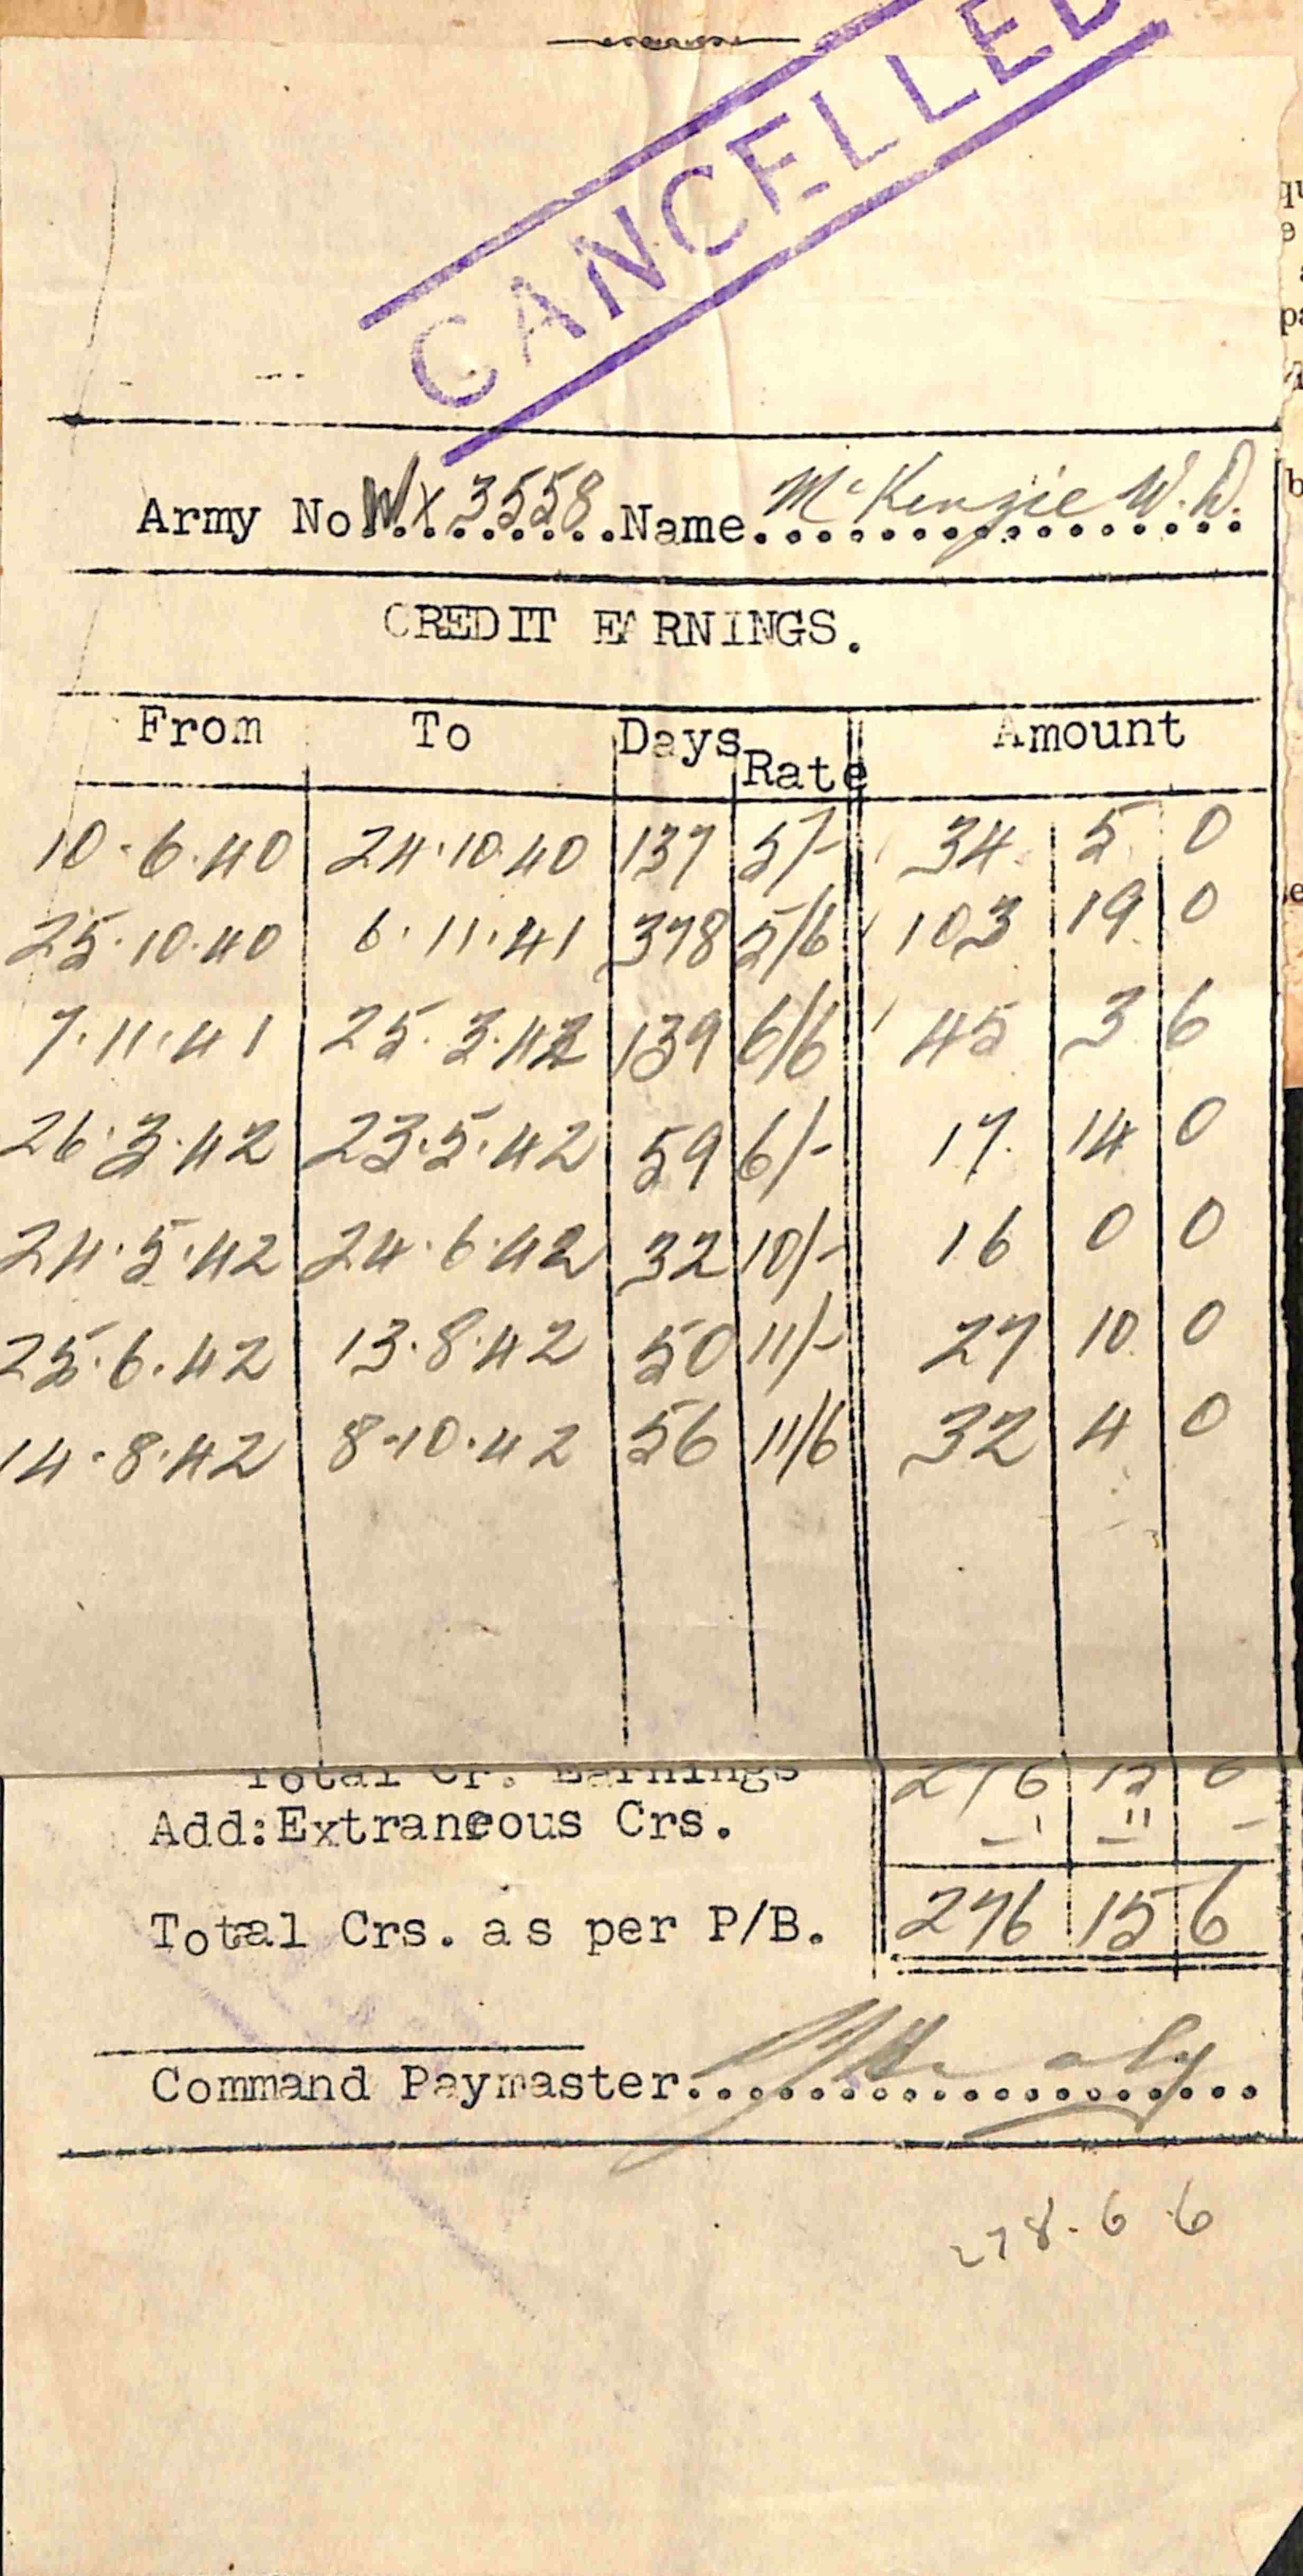 CANCELLED
Army No WX 3558 Name McKenzie W.D.
CREDIT EARNINGS.
From To Days Rate Amount
10.6.40 24.10.40 137 5/- 34 5 0
25.10.40 6.11.41 378 5/6 103 19 0
7.11.41 25.3.42 139 6/6 45 3 6
26.3.42 23.5.42 59 6/- 17 14 0
24.5.42 24.6.42 32 10/- 16 0 0
25.6.42 13.8.42 50 11/- 27 10 0
14.8.42 8.10.42 56 11/6 32 4 0
Total Cr. Earnings 276 15 6
Add: Extraneous Crs. - 11 -
Total Crs. as per P/B. 276 15 6
Command Paymaster
278.6 6